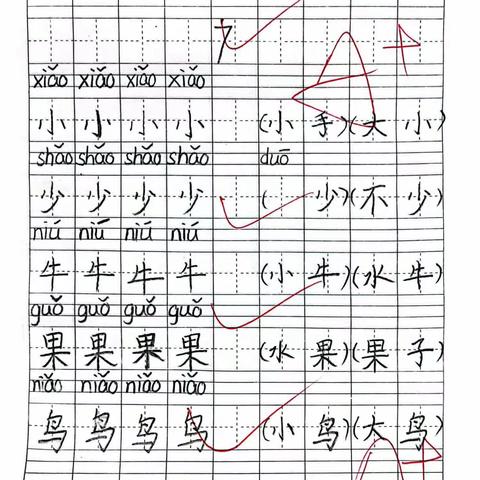 A+
xiǎo xiǎo xiǎo xiǎo
小 小 小 小 (小 手)(大 小)
shǎo shǎo shǎo shǎo duō
少 少 少 少 ( 少)(不 少)
niú niú niú niú
牛 牛 牛 牛 (小 牛)(水 牛)
guǒ guǒ guǒ guǒ
果 果 果 果 (水 果)(果 子)
niǎo niǎo niǎo niǎo
鸟 鸟 鸟 鸟 (小 鸟)(大 鸟)